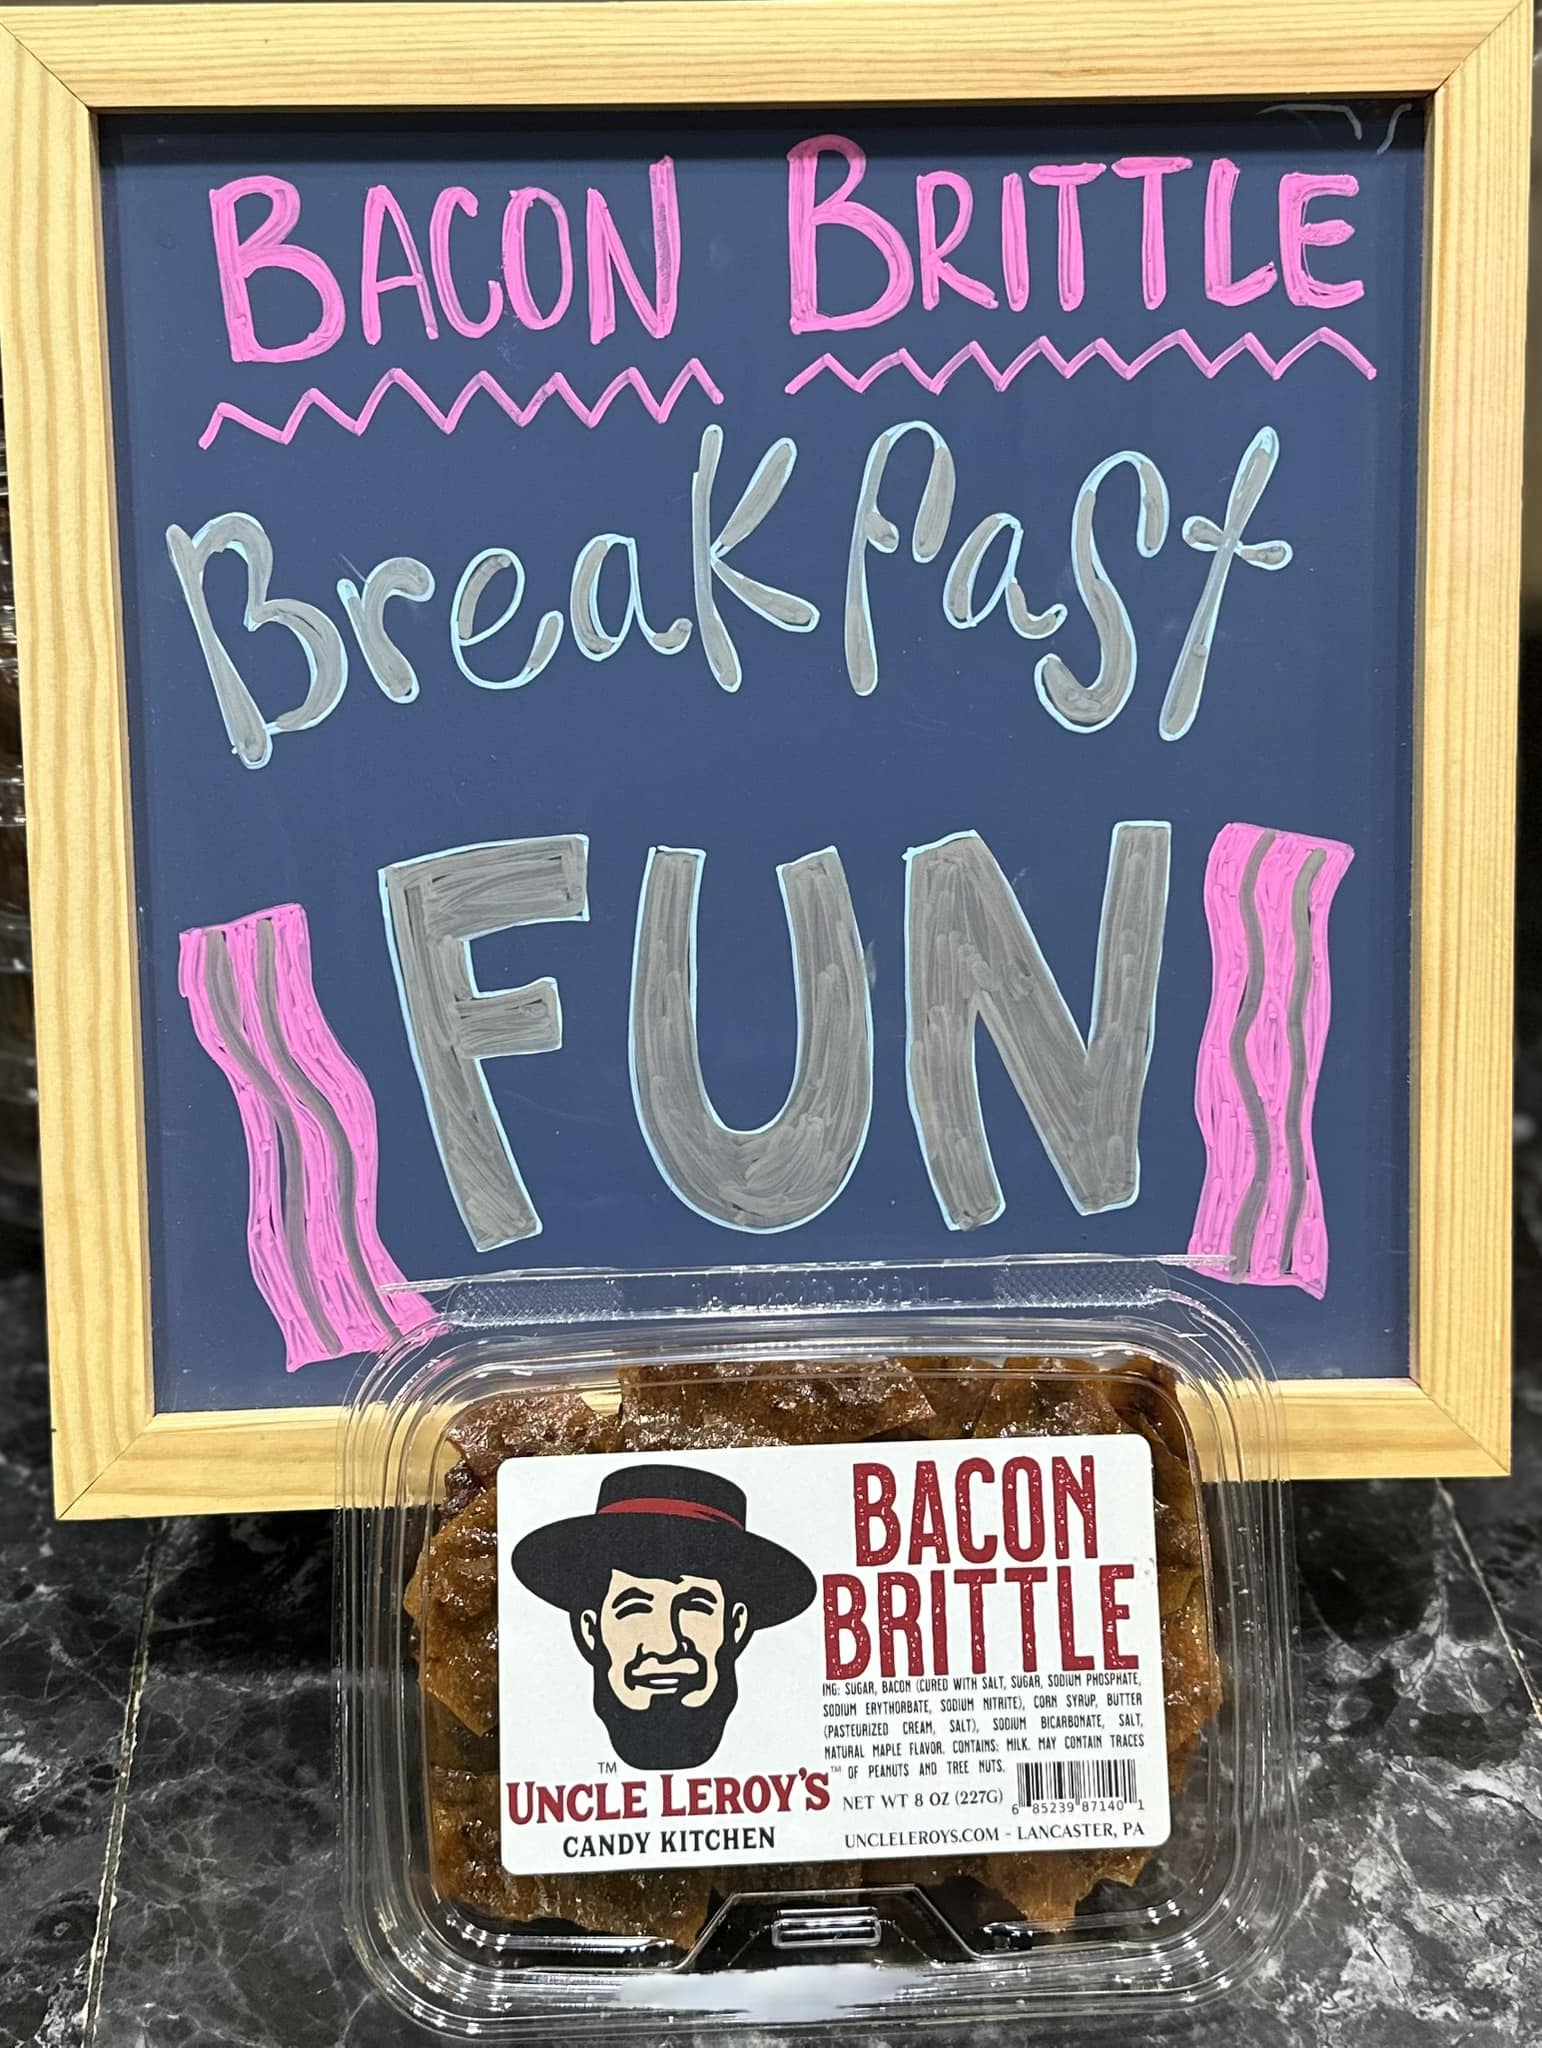 BACON BRITTLE
Breakfast
FUN
BACON
BRITTLE
ING: SUGAR, BACON (CURED WITH SALT, SUGAR, SODIUM PHOSPHATE,
SODIUM ERYTHORBATE, SODIUM NITRITE), CORN SYRUP, BUTTER
(PASTEURIZED CREAM, SALT), SODIUM BICARBONATE, SALT,
NATURAL MAPLE FLAVOR. CONTAINS: MILK. MAY CONTAIN TRACES
OF PEANUTS AND TREE NUTS.
TM
UNCLE LEROY'S™
CANDY KITCHEN
NET WT 8 OZ (227G)
6 85239 87140 1
UNCLELEROYS.COM - LANCASTER, PA